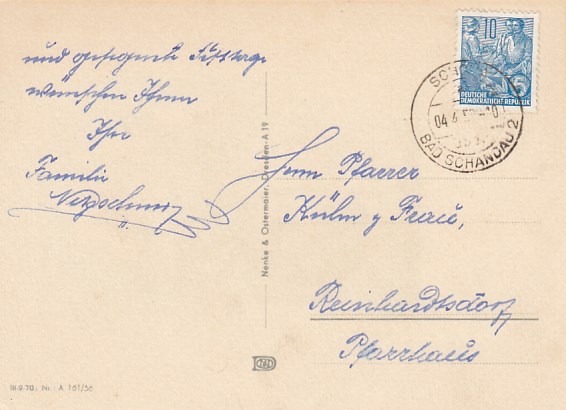 und gesegnete Festtage
wünschen Ihnen
Ihre
Familie
Herrn Pfarrer
Kühn u Frau,
Reinhardtsdorf
Pfarrhaus
10
DEUTSCHE
DEMOKRATISCHE REPUBLIK
04.6
BAD SCHANDAU 2
Nenke & Ostermaier, Dresden-A 19
III-9-30, Nr. A 161/56